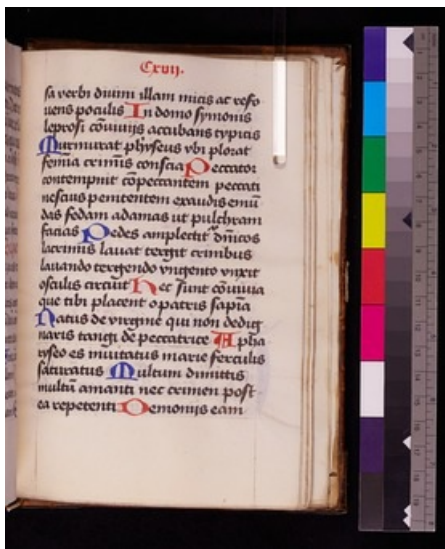 Cxvij.
sa verbi diuini illam micis ac refo
uens poculis In domo symonis
leprosi cōuiuijs accubans typicis
Murmurat physeus vbi plorat
femīa crimīs conscia Peccator
contempnit cōpeccantem peccati
nescius penitentem exaudis emū
das fedam adamas ut pulchram
facias Pedes amplectit dn̄icos
lacrimis lauat tergit crinibus
lauando tergendo vngento vnxit
osculis circuit Hec sunt cōuiuia
que tibi placent o patris sapīa
Natus de virgine qui non dedig
naris tangi de peccatrice A pha
ryseo es inuitatus marie ferculis
saturatus Multum dimittis
multū amanti nec crimen post
ea repetenti Demonijs eam